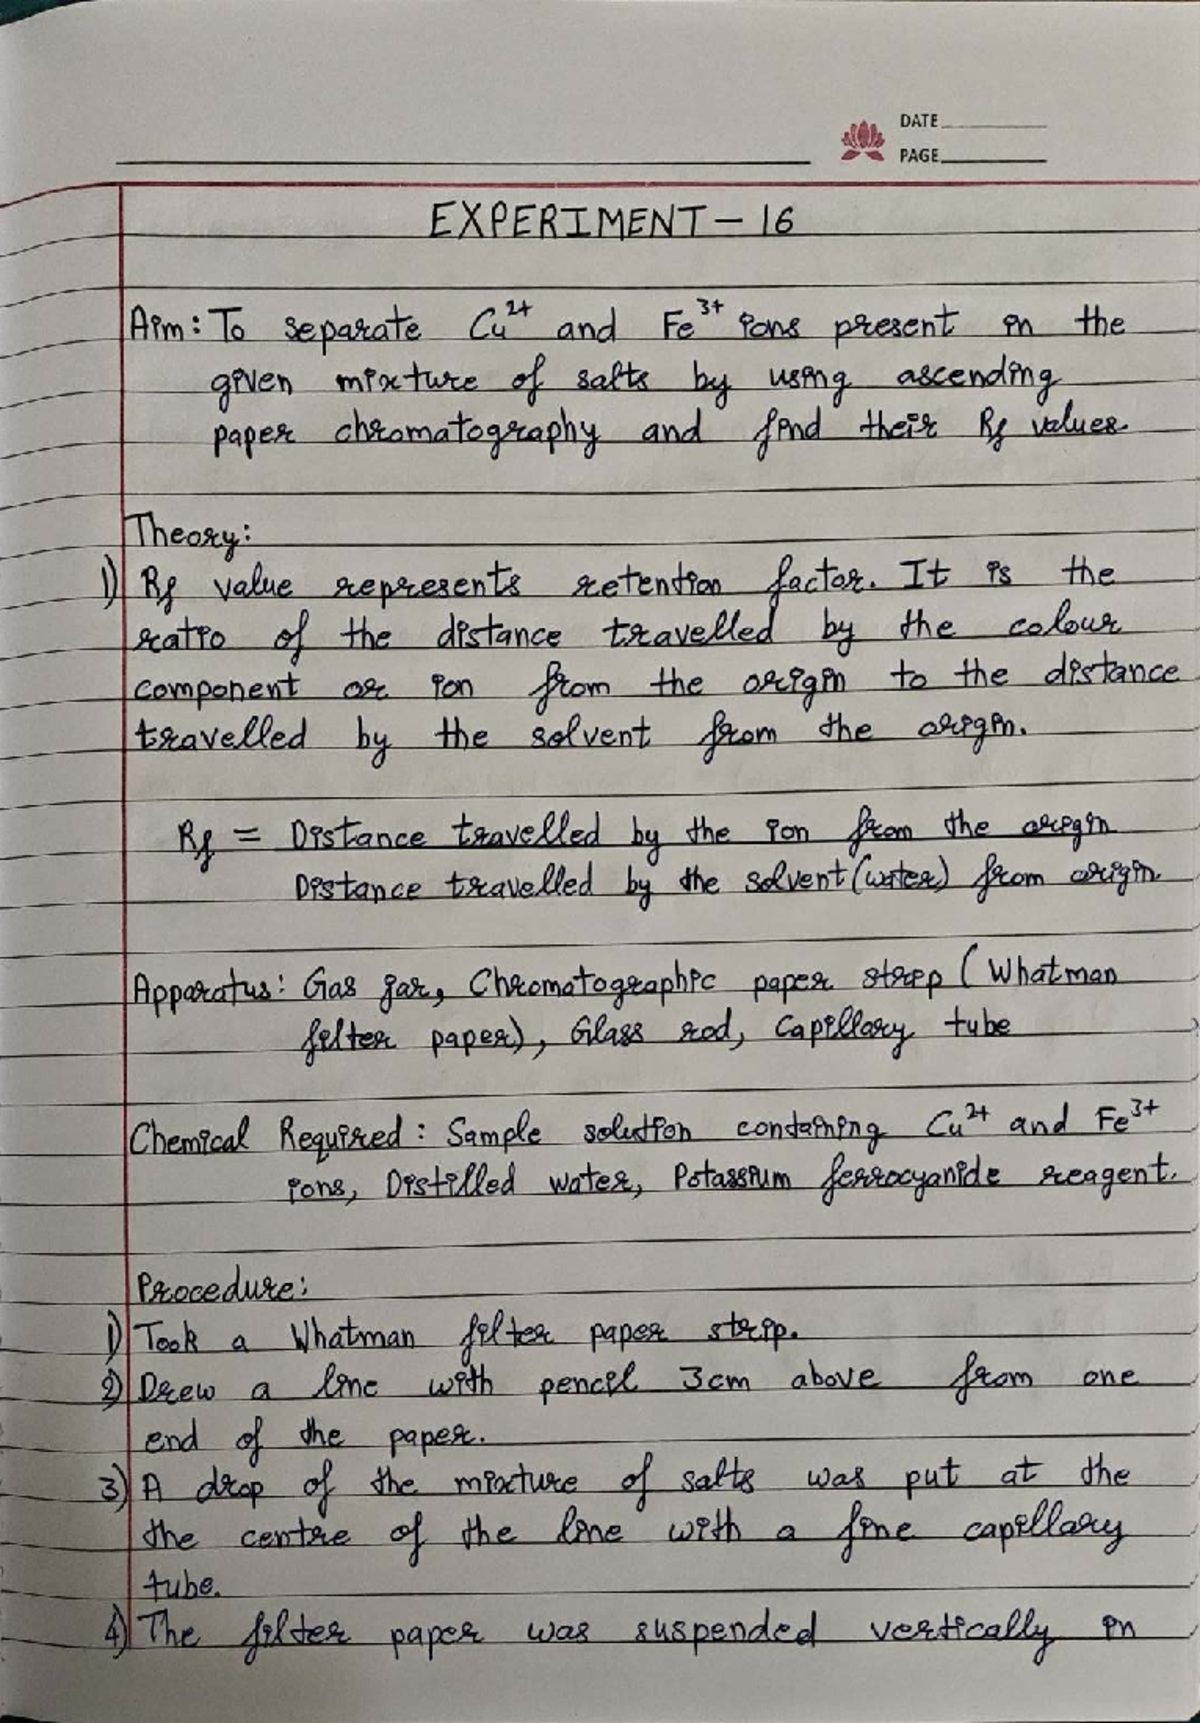 DATE
PAGE
EXPERIMENT - 16
Aim: To separate Cu²⁺ and Fe³⁺ ions present in the
given mixture of salts by using ascending
paper chromatography and find their Rf values.
Theory:
1) Rf value represents retention factor. It is the
ratio of the distance travelled by the colour
component or ion from the origin to the distance
travelled by the solvent from the origin.
Rf = Distance travelled by the ion from the origin
Distance travelled by the solvent (water) from origin.
Apparatus: Gas jar, Chromatographic paper strip (Whatman
filter paper), Glass rod, Capillary tube
Chemical Required: Sample solution containing Cu²⁺ and Fe³⁺
ions, Distilled water, Potassium ferrocyanide reagent.
Procedure:
1) Took a Whatman filter paper strip.
2) Drew a line with pencil 3cm above from one
end of the paper.
3) A drop of the mixture of salts was put at the
the centre of the line with a fine capillary
tube.
4) The filter paper was suspended vertically in